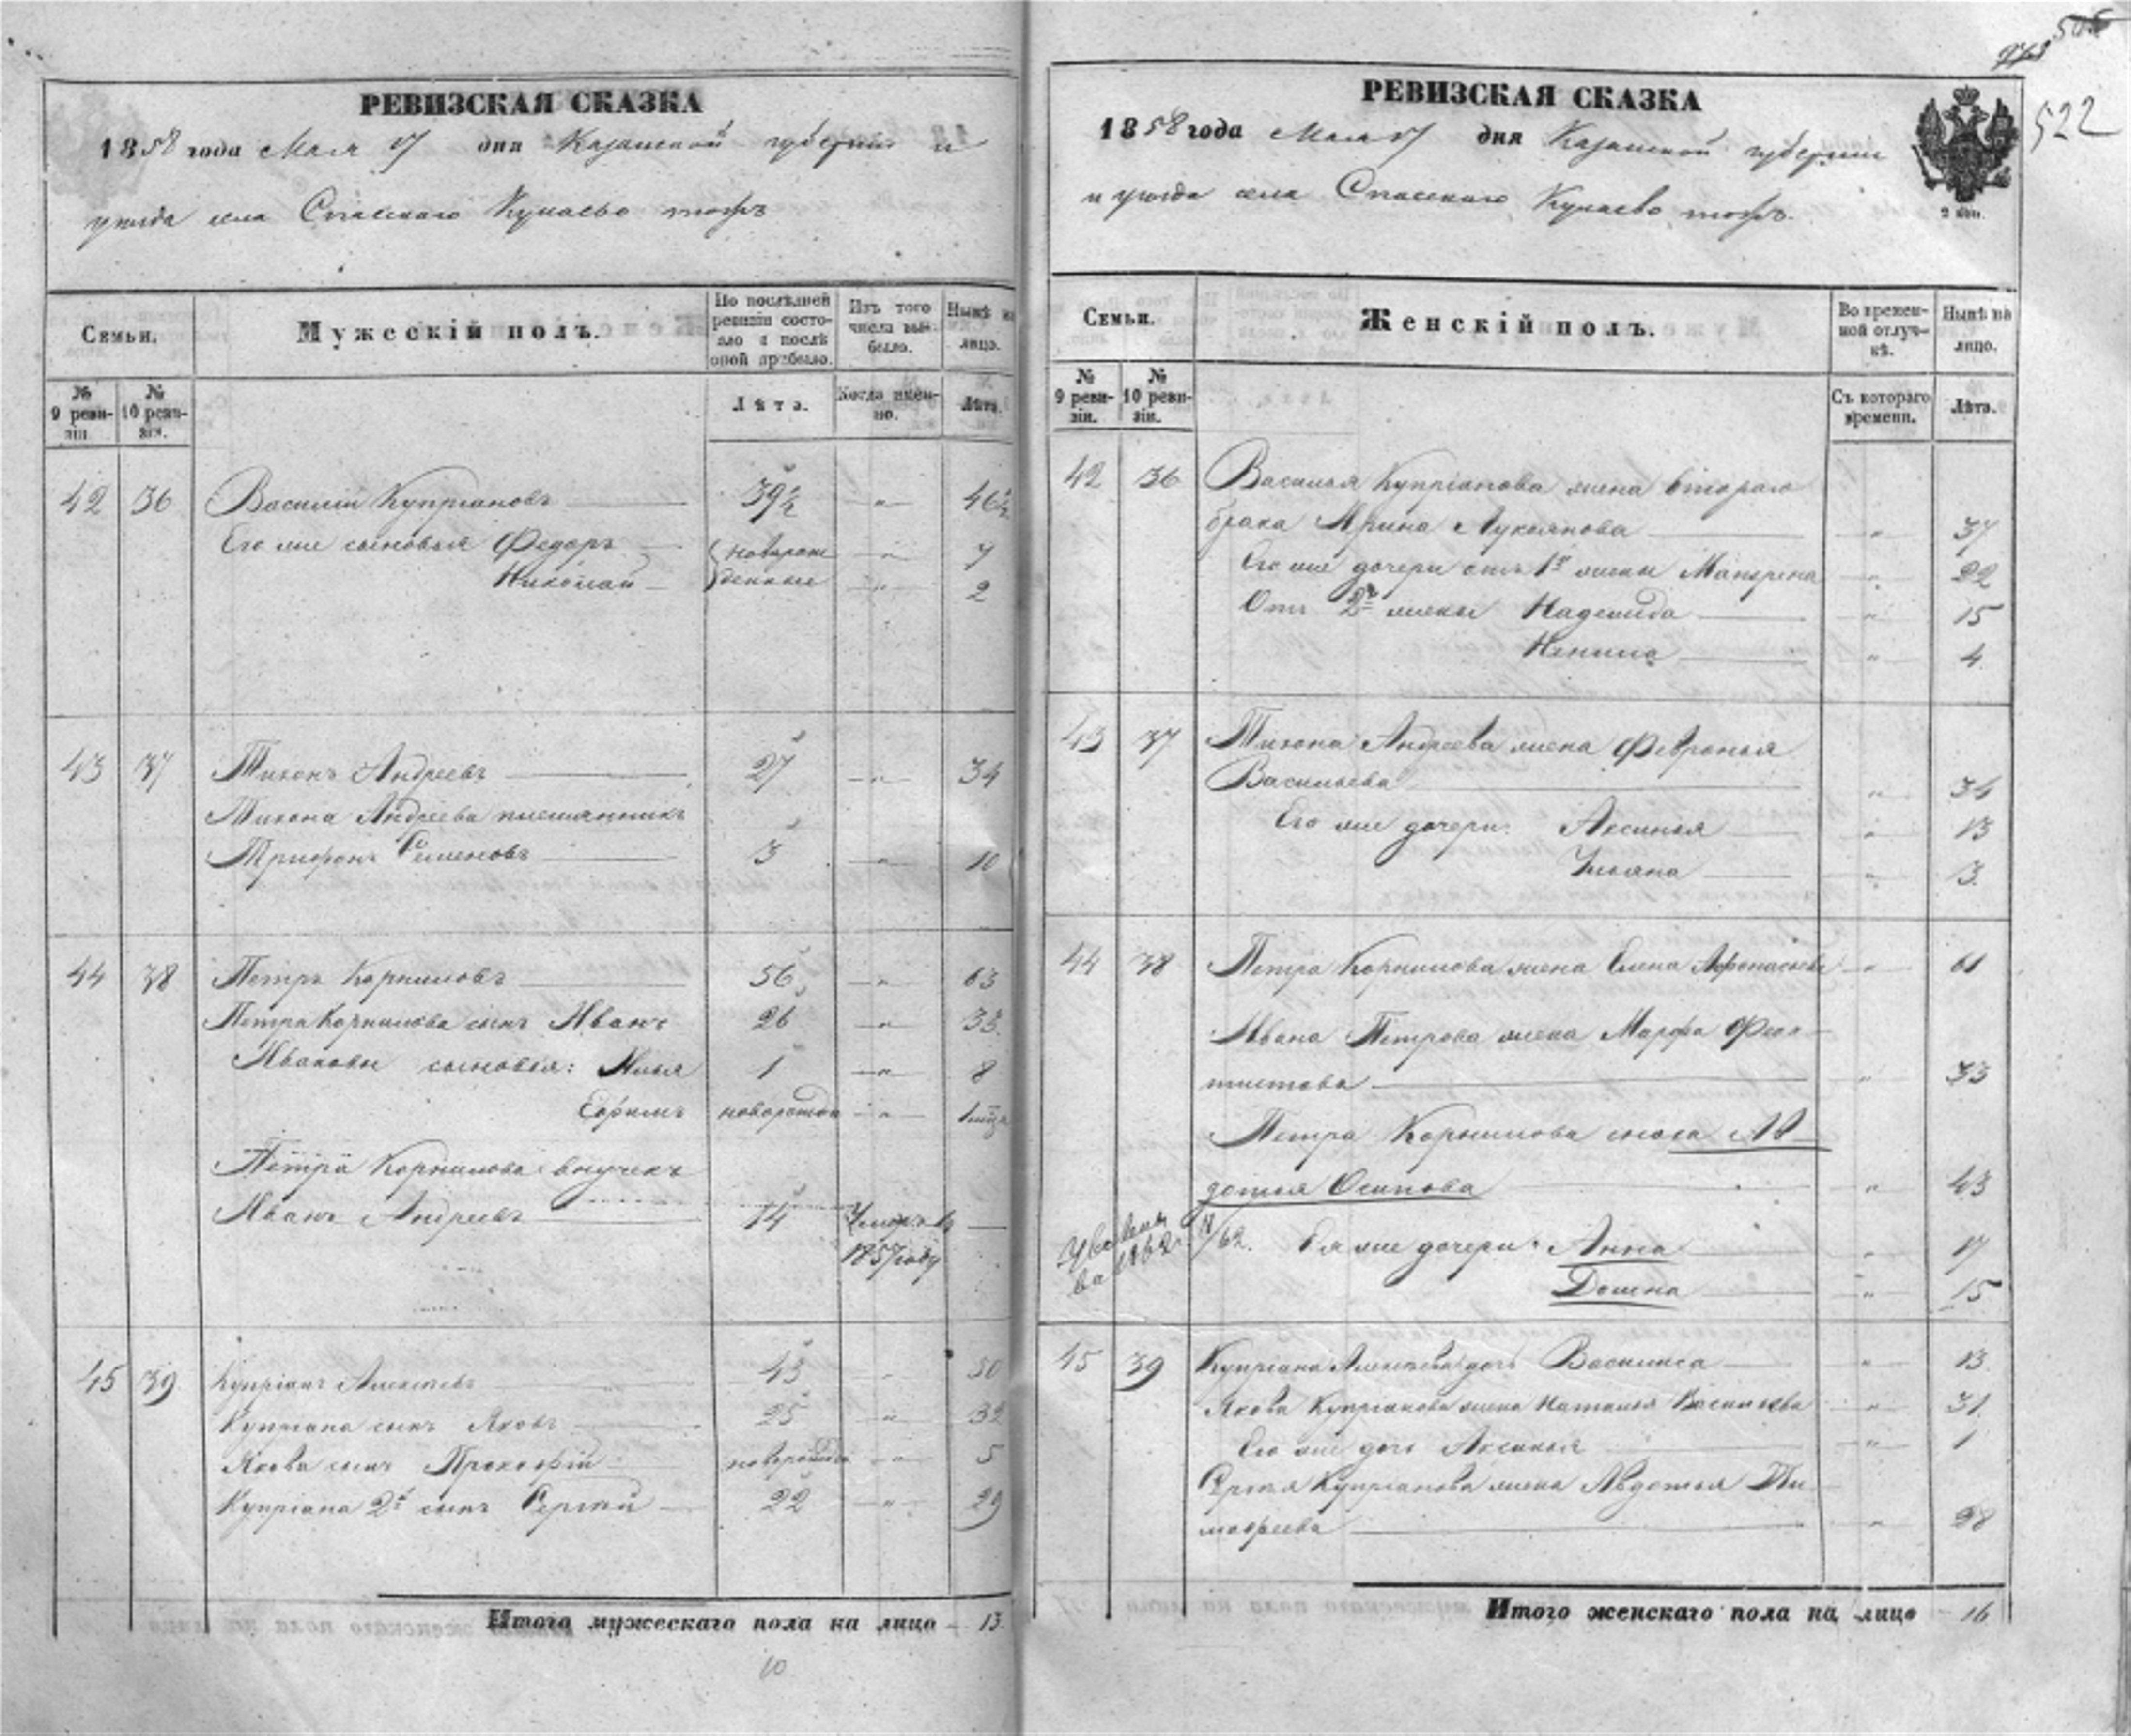 РЕВИЗСКАЯ СКАЗКА
1858 года Мая 17 дня Казанской губернии и
уезда села Спаского Кукаево тожъ
Семьи.
Мужескій полъ.
По послѣдней
ревизіи состо-
яло и послѣ
оной прибыло.
Изъ того
числа вы-
было.
Нынѣ на
лицо.
№
9 реви-
зіи.
№
10 реви-
зіи.
Лѣта.
Когда имен-
но.
Лѣта.
42 36 Василій Купріановъ 39½ " 46½
Его же сыновья Федоръ новорож " 7
Николай денные " 2
43 37 Тихонъ Андреевъ 27 " 34
Тихона Андреева племянникъ
Трифонъ Семеновъ 3 " 10
44 38 Петръ Корниловъ 56 " 63
Петра Корнилова сынъ Иванъ 26 " 33
Ивановы сыновья: Илья 1 " 8
Ефимъ новорожден "
Петра Корнилова внучекъ
Иванъ Андреевъ 14 Умеръ в
1857 году
45 39 Купріанъ Алексѣевъ 43 " 50
Купріана сынъ Яковъ 25 " 32
Якова сынъ Прокофій " 5
Купріана 2й сынъ Сергѣй 22 " 29
Итого мужескаго пола на лицо 13.
10
522
РЕВИЗСКАЯ СКАЗКА
1858 года Мая 17 дня Казанской губерніи
и уезда села Спаского Кукаево тожъ.
2 коп.
Семьи.
Женскій полъ.
Во времен-
ной отлуч-
кѣ.
Нынѣ на
лицо.
№
9 реви-
зіи.
№
10 реви-
зіи.
Съ котораго
времени.
Лѣта.
42 36 Василья Купріанова жена втораго
брака Ирина Лукоянова " 37
Его же дочери отъ 1й жены Матрена " 22
Отъ 2й жены Надежида " 15
" 4
43 37 Тихона Андреева жена Февронья
Васильева " 34
Его же дочери: Аксинья " 13
Ульяна " 3
44 38 Петра Корнилова жена Елена Афонасьева " 61
Ивана Петрова жена Марфа Феок
тистова " 33
Петра Корнилова сноха Ав
дотья Осипова " 43
Ея же дочери: Анна " 17
Домна " 15
45 39 Купріана Алексѣева дочь Василиса " 13
Якова Купріанова жена Наталья Васильева " 31
Его же дочь Аксинья " 1
Сергѣя Купріанова жена Авдотья Ти
мофеева " 28
Итого женскаго пола на лицо 16